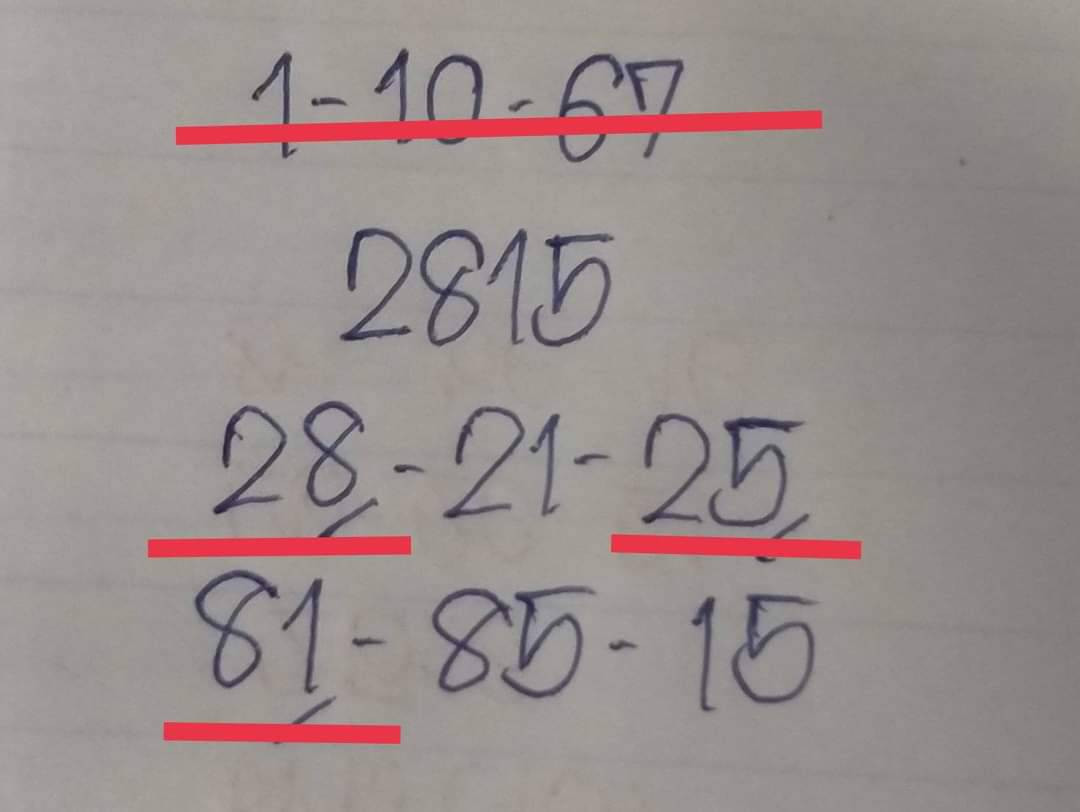 1-10-67
2815
28-21-25
81-85-15